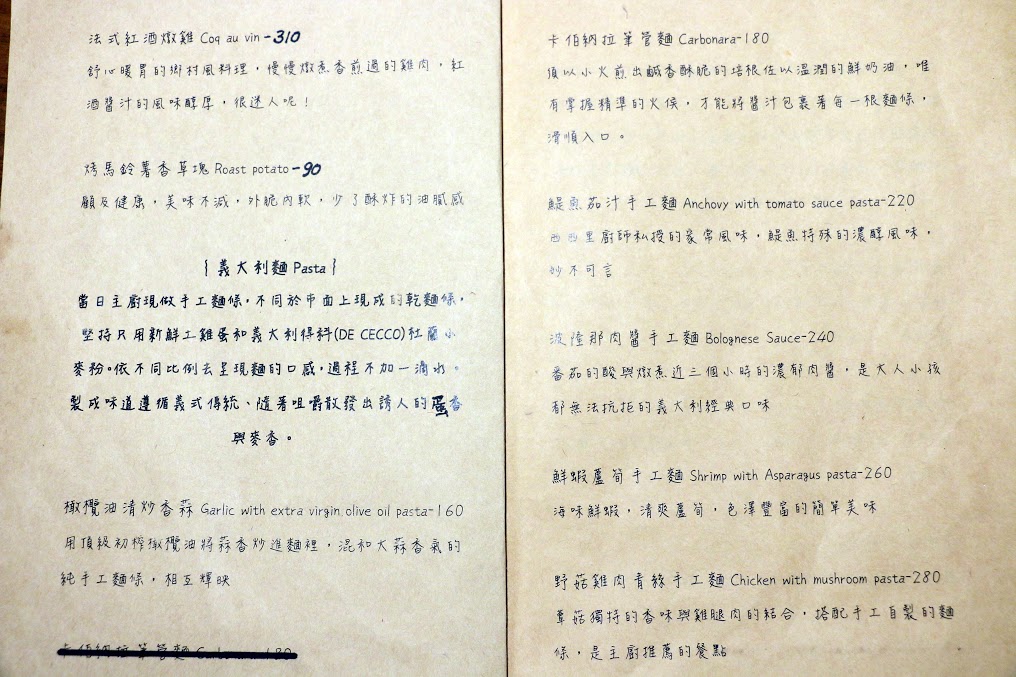 法式紅酒燉雞 Coq au vin-310
舒心暖胃的鄉村風料理，慢慢燉煮香煎過的雞肉，紅
酒醬汁的風味醇厚，很迷人呢！
烤馬鈴薯香草塊 Roast potato-90
顧及健康，美味不減，外脆內軟，少了酥炸的油膩感
{ 義大利麵 Pasta }
當日主廚現做手工麵條，不同於市面上現成的乾麵條，
堅持只用新鮮土雞蛋和義大利得科(DE CECCO)杜蘭小
麥粉。依不同比例去呈現麵的口感，過程不加一滴水。
製成味道遵循義式傳統、隨著咀嚼散發出誘人的蛋香
與麥香。
橄欖油清炒香蒜 Garlic with extra virgin olive oil pasta-160
用頂級初榨橄欖油將蒜香炒進麵裡，混和大蒜香氣的
純手工麵條，相互輝映
卡伯納拉筆管麵 Carbonara-180
須以小火煎出鹹香酥脆的培根佐以溫潤的鮮奶油，唯
有掌握精準的火侯，才能將醬汁包裹著每一根麵條，
滑順入口。
鯷魚茄汁手工麵 Anchovy with tomato sauce pasta-220
西西里廚師私授的家常風味，鯷魚特殊的濃醇風味，
妙不可言
波隆那肉醬手工麵 Bolognese Sauce-240
番茄的酸與燉煮近三個小時的濃郁肉醬，是大人小孩
都無法抗拒的義大利經典口味
鮮蝦蘆筍手工麵 Shrimp with Asparagus pasta-260
海味鮮蝦，清爽蘆筍，色澤豐富的簡單美味
野菇雞肉青絲手工麵 Chicken with mushroom pasta-280
蕈菇獨特的香味與雞腿肉的結合，搭配手工自製的麵
條，是主廚推薦的餐點